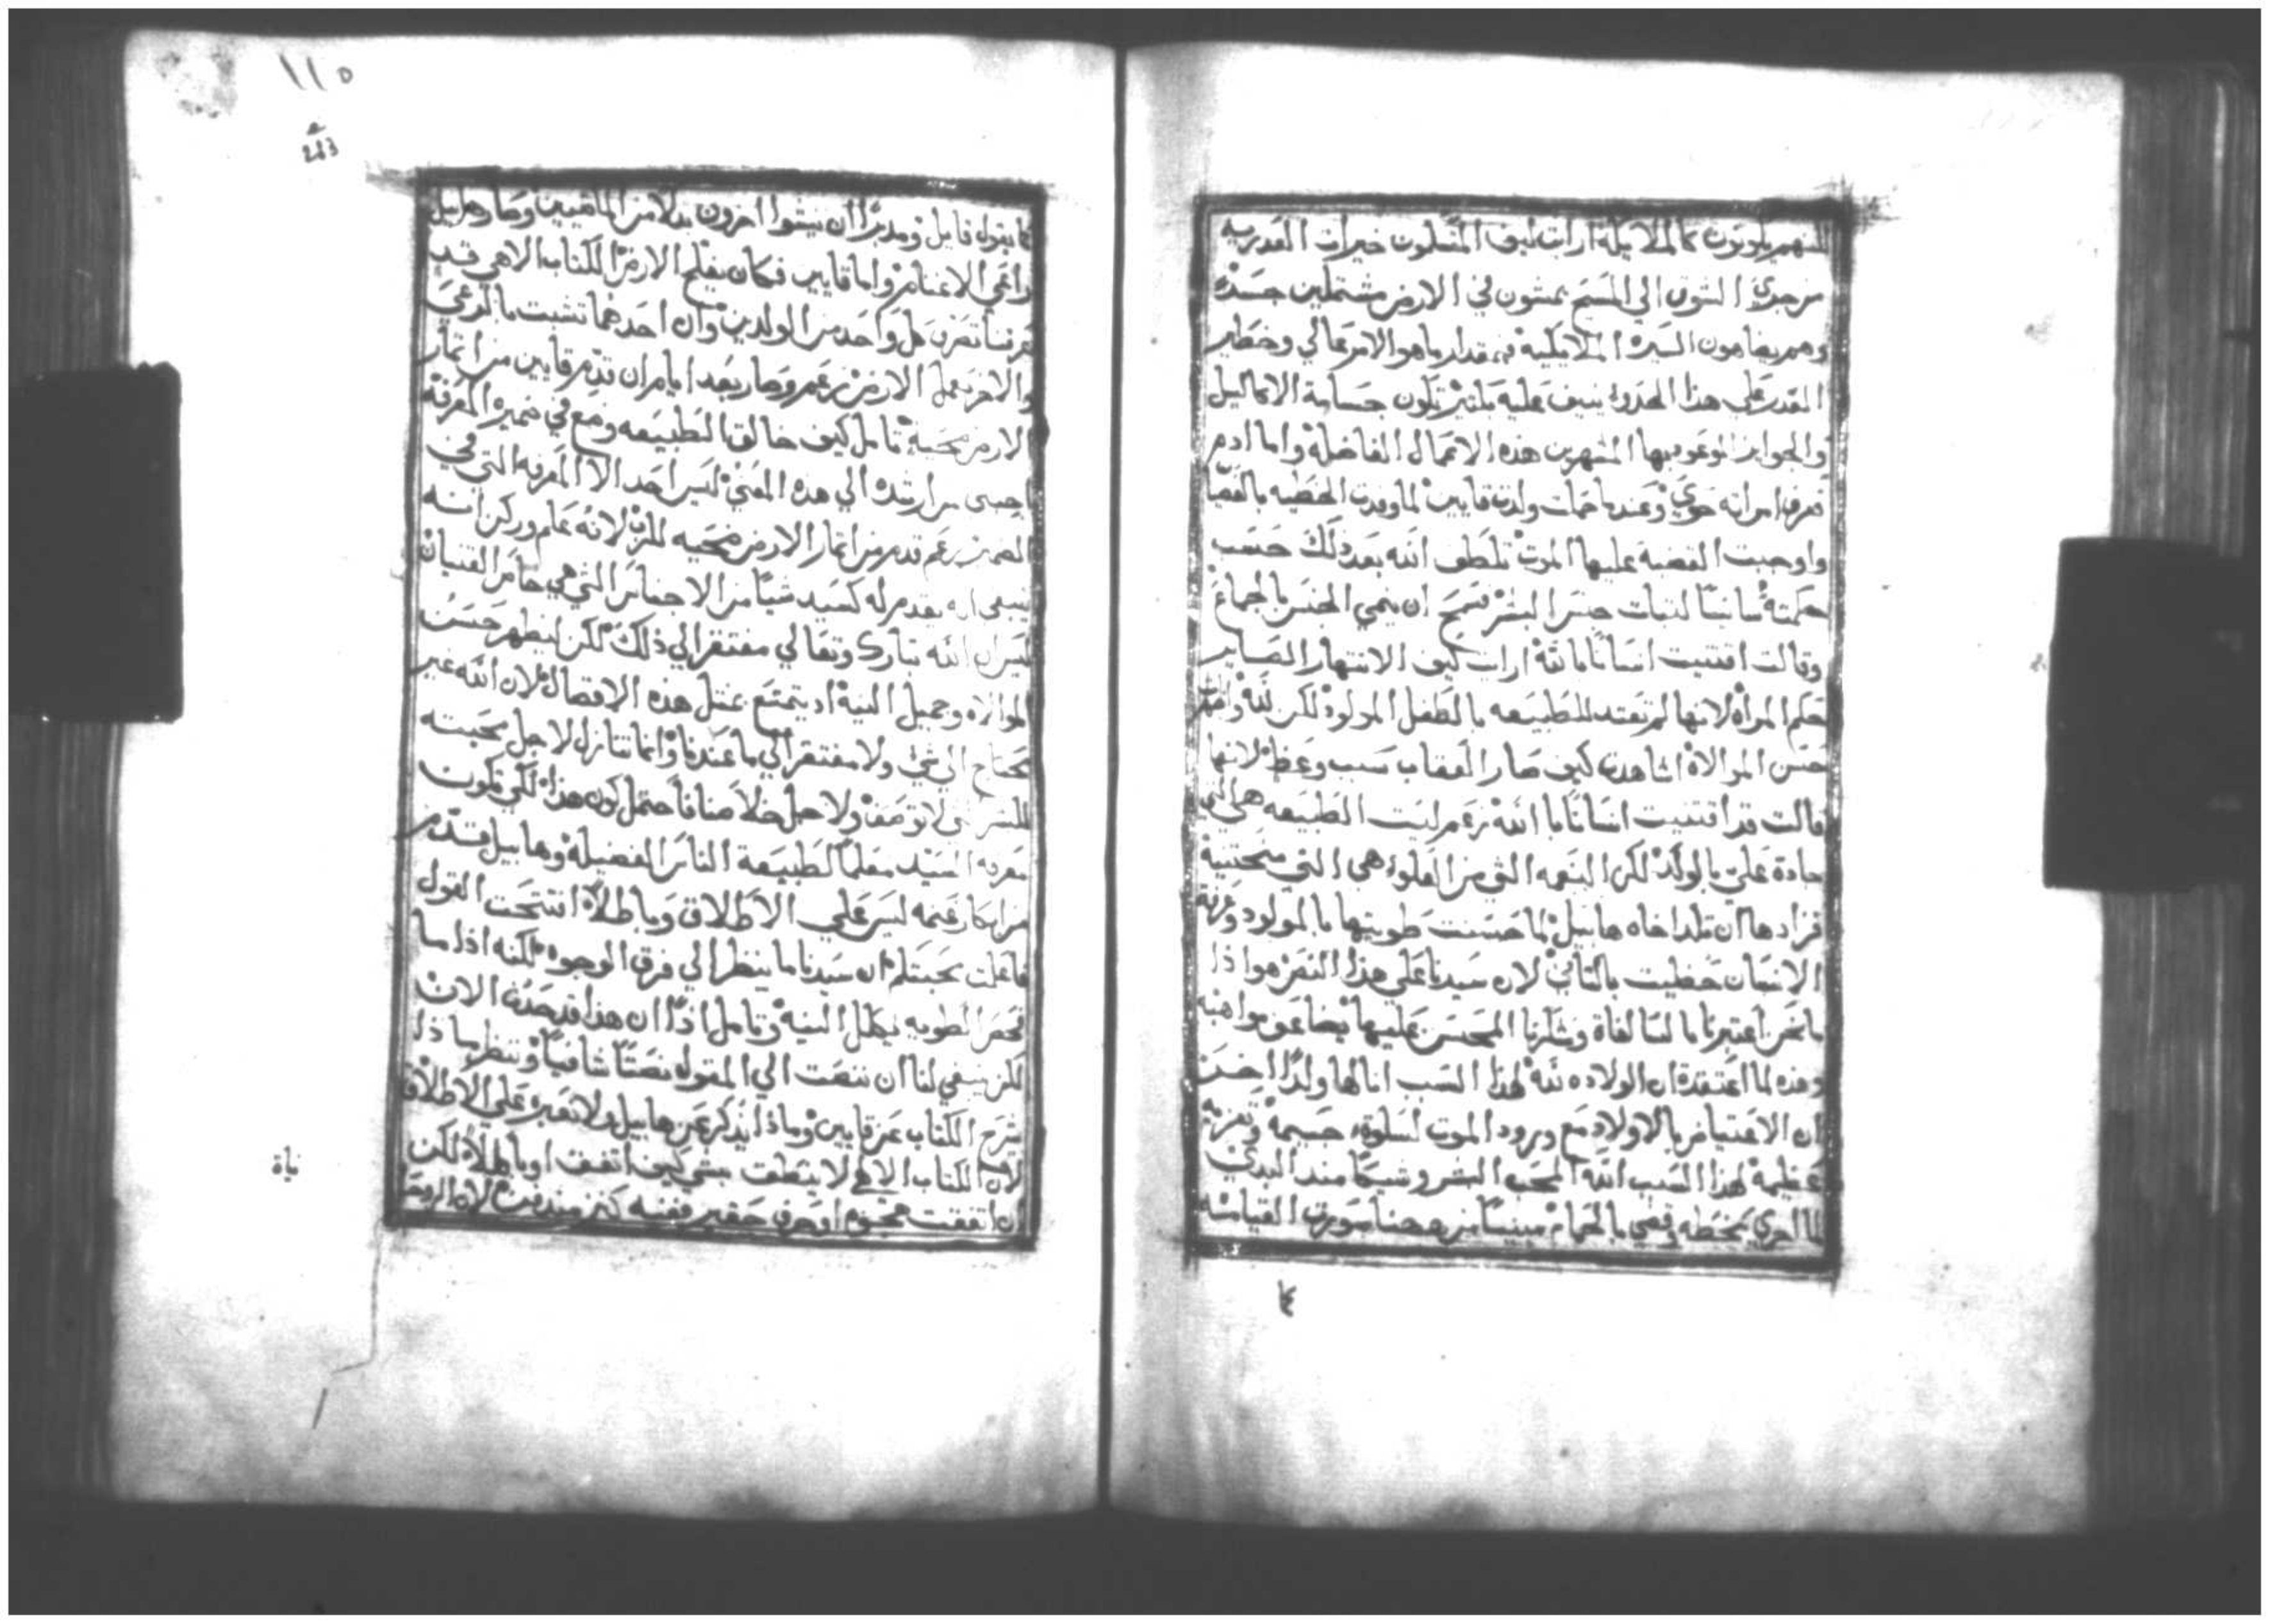 لكنهم يكونون كالملايكة ارايت كيف المتبتلون خيرات القديريه
من جدي الشوق الي المسيح يمشون في الارض مشتملين جسدًا
وهم يضاهون السيره الملايكية فبمقدار ما هو الامر عالي وخطير
المقدر علي هذا الحدوا ينيف عليه بكثير تكون جسامة الاكاليل
والجوايز الموعود بها المظهرين هذه الاعمال الفاضلة واما ادم
فعرف امراته حوي وعندما حملت ولدت قايين لما وفدت الخطيه بالقضا
واوجبت القضية عليها الموت تلطف الله بعد ذلك حسب
حكمته سانسًا لثبات جنس البشر فسمح ان ينمي الجنس بالجماع
وقالت اقتنيت انسانًا بالله ارايت كيف الانتهار الصاير
حكم المراه لانها لم تعتد للطبيعه بالطفل المولود لكن لله واظهرت
حسن الموالاة اشاهدت كيف صار العقاب سبب وعظ لانها
قالت قد اقتنيت انسانًا بالله زعم ليست الطبيعه هي التي
جادة علي بالولد لكن النعمه التي من العلو هي التي منحتنيه
فزادها ان تلد اخاه هابيل لما حسنت طويتها بالمولود وعرفة
الانسان حظيت بالثاني لان سيدنا علي هذا النص هو اذا
ما نحن اعتبرنا بالسالفاة وشكرنا المحسن عليها يضاعف مواهبه
وهذه لما اعتقدة ان الولاده لله لهذا السبب انالها ولدًا اخر
ان الاعتياض بالاولاد مع ورود الموت لسلوة جسيمة وتعزية
عظيمة لهذا السبب الله المحب البشر وشيكًا منذ البدي
لما اجري بخطه وقضي بالحمام مبينًا من ههنا صورت القيامة
كا
١١٥
كما يقول قايل ومدبرًا ان ينشوا اخرون بدلا من الماضيين وصار هابيل
راعي الاغنام واما قايين فكان يفلح الارض الكتاب الالاهي قد
عرفنا تصرف كل واحد من الولدين وان احدهما تشبت بالرعي
والاخر بعمل الارض زعم وصار بعد ايام ان قدم قايين من اثمار
الارض ضحية تامل كيف خالق الطبيعه وضع في ضميره المعرفة
ارشده الي هذه المعني ليس احد الا المعرفة التي في
الضمير زعم قدم من اثمار الارض ضحيه للرب لانه علم وركن انه
ينبغي ان يقدم له كسيد شيًا من الاجناس التي هي خاص القنيان
ليس ان الله تبارك وتعالي مفتقر الي ذلك لكن ليظهر حسن
الموالاه وجميل النية اذ يتمتع بمثل هذه الافضال لان الله غير
محتاج الي شي ولا مفتقر الي ما عندنا وانما تنازل لاجل محبته
للبشر التي لا توصف ولاجل خلاصنا فاحتمل كون هذا لكي تكون
معرفة السيد معلمًا لطبيعة الناس الفضيلة وهابيل قدم
من ابكار غنمه ليس علي الاطلاق وباطلا افتتحت القول
فاعلمت محبتكم ان سيدنا ما ينظر الي فرق الوجوه لكنه اذا ما
فحص الطويه يكلل النية وتامل اذًا ان هذا قد حدث الان
لكن ينبغي لنا ان ننصت الي المقول نصتًا شافيًا وننظر ماذا
يشرح الكتاب عن قايين وماذا يذكر عن هابيل ولا نعبره علي الاطلاق
لان الكتاب الالاهي لا ينطق بشي كيف اتفق او باطلا لكن
ان اتفقت هجوه او حرف حقير ففيه كنز مندفن لان الروحا
نياة